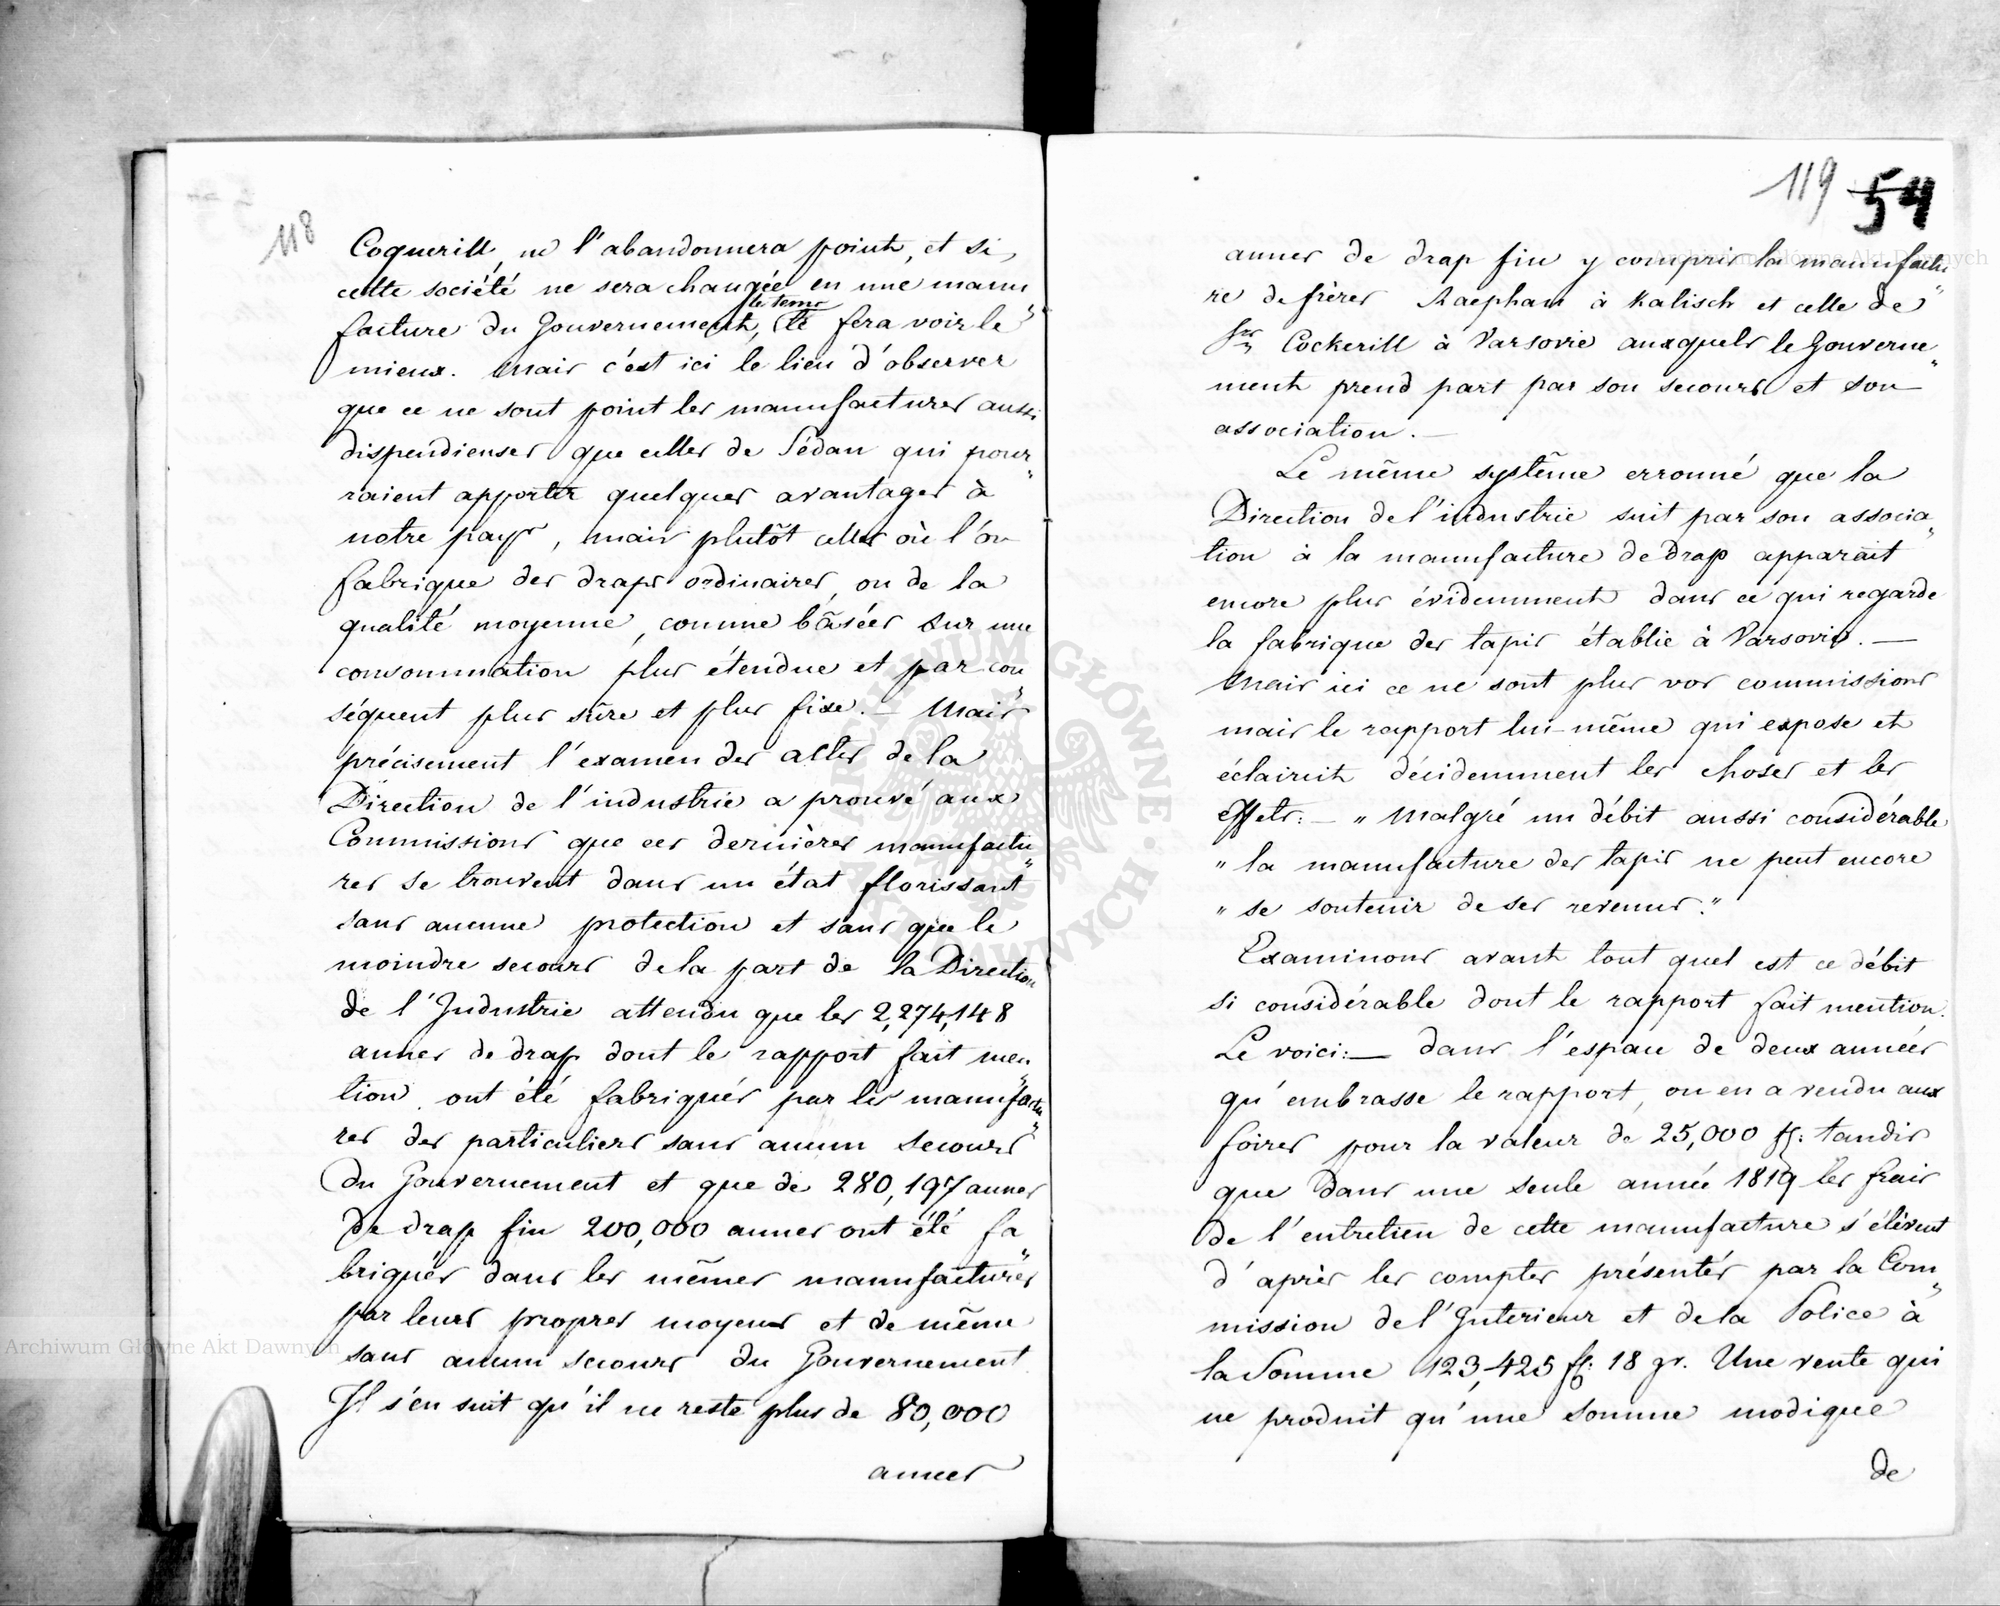 118
Coquerill, ne l'abandonnera point, et si
cette société ne sera changée en une manu
facture du Gouvernement, le tems le fera voir le
mieux. Mais c'est ici le lieu d'observer
que ce ne sont point les manufactures aussi
dispendieuses que celles de Sédan qui pour„
raient apporter quelques avantages à
notre pays, mais plutôt celles où l'on
fabrique des draps ordinaires, ou de la
qualité moyenne, comme basées sur une
consommation plus étendue et par con„
séquent plus sûre et plus fixe. — Mais
précisement l'examen des actes de la
Direction de l'industrie a prouvé aux
Commissions que ces dernières manufactu„
res se trouvent dans un état florissant
sans aucune protection et sans que le
moindre secours de la part de la Direction
de l'Industrie attendu que les 2,274,148
aunes de drap dont le rapport fait men„
tion ont été fabriqués par les manufactu„
res des particuliers sans aucun secours
du Gouvernement et que de 280,197 aunes
de drap fin 200,000 aunes ont été fa„
briqués dans les mêmes manufactures
par leurs propres moyens et de même
sans aucun secours du Gouvernement.
Il s'en suit qu'il ne reste plus de 80,000
aunes
119 54
aunes de drap fin y compris la manufactu„
re de frères Raephan à Kalisch et celle de
Srs Cockerill à Varsovie auxquels le Gouverne„
ment prend part par son secours et son
association. —
Le même système erronné que la
Direction de l'industrie suit par son associa„
tion à la manufacture de drap apparait
encore plus évidemment dans ce qui regarde
la fabrique des tapis établie à Varsovie. —
Mais ici ce ne sont plus vos commissions
mais le rapport lui-même qui expose et
éclaircit décidemment les choses et les
effets: — „ Malgré un débit aussi considérable
„ la manufacture des tapis ne peut encore
„ se soutenir de ses revenus."
Examinons avant tout quel est ce débit
si considérable dont le rapport fait mention.
Le voici: — dans l'espace de deux années
qu'embrasse le rapport, on en a vendu aux
foires pour la valeur de 25,000 fl: tandis
que dans une seule année 1819 les frais
de l'entretien de cette manufacture s'élèvent
d'après les comptes présentés par la Com„
mission de l'Interieur et de la Police à
la Somme 123,425 fl: 18 gr. Une vente qui
ne produit qu'une somme modique
de
Archiwum Główne Akt Dawnych
Archiwum Główne Akt Dawnych
ARCHIWUM GŁÓWNE AKT DAWNYCH